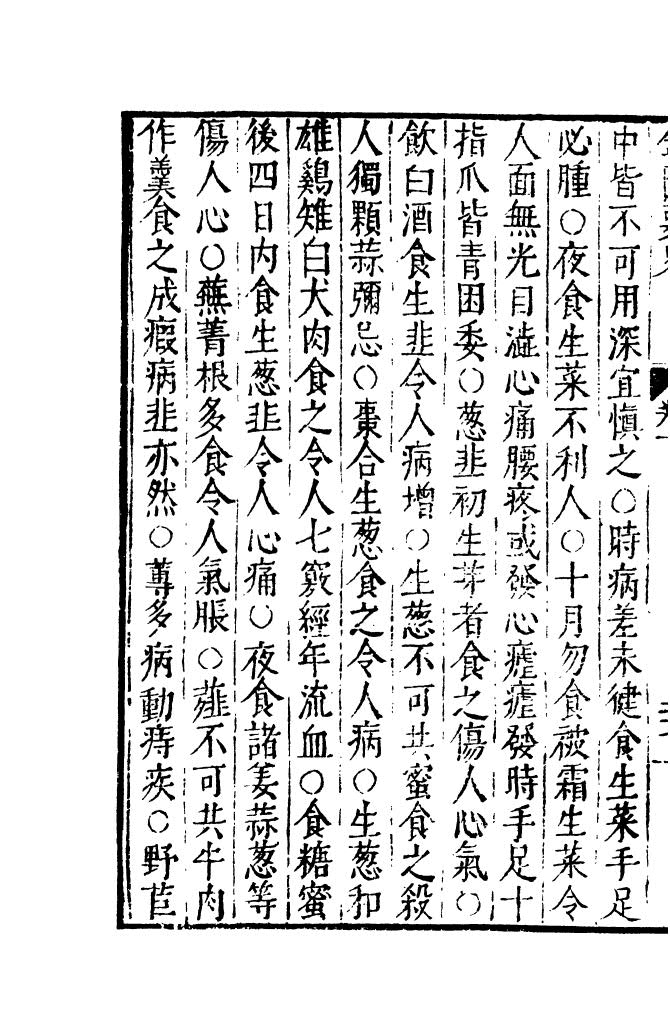 中皆不可用深宜慎之〇時病差未健食生菜手足
必腫〇夜食生菜不利人〇十月勿食被霜生菜令
人面無光目澁心痛腰疼或發心瘧瘧發時手足十
指爪皆青困委〇葱韭初生芽者食之傷人心氣〇
飲白酒食生韭令人病增〇生葱不可共蜜食之殺
人獨顆蒜彌忌〇棗合生葱食之令人病〇生葱和
雄鷄雉白犬肉食之令人七竅經年流血〇食糖蜜
後四日內食生葱韭令人心痛〇夜食諸姜蒜葱等
傷人心〇蕪菁根多食令人氣脹〇薤不可共牛肉
作羹食之成瘕病韭亦然〇蓴多病動痔疾〇野苣